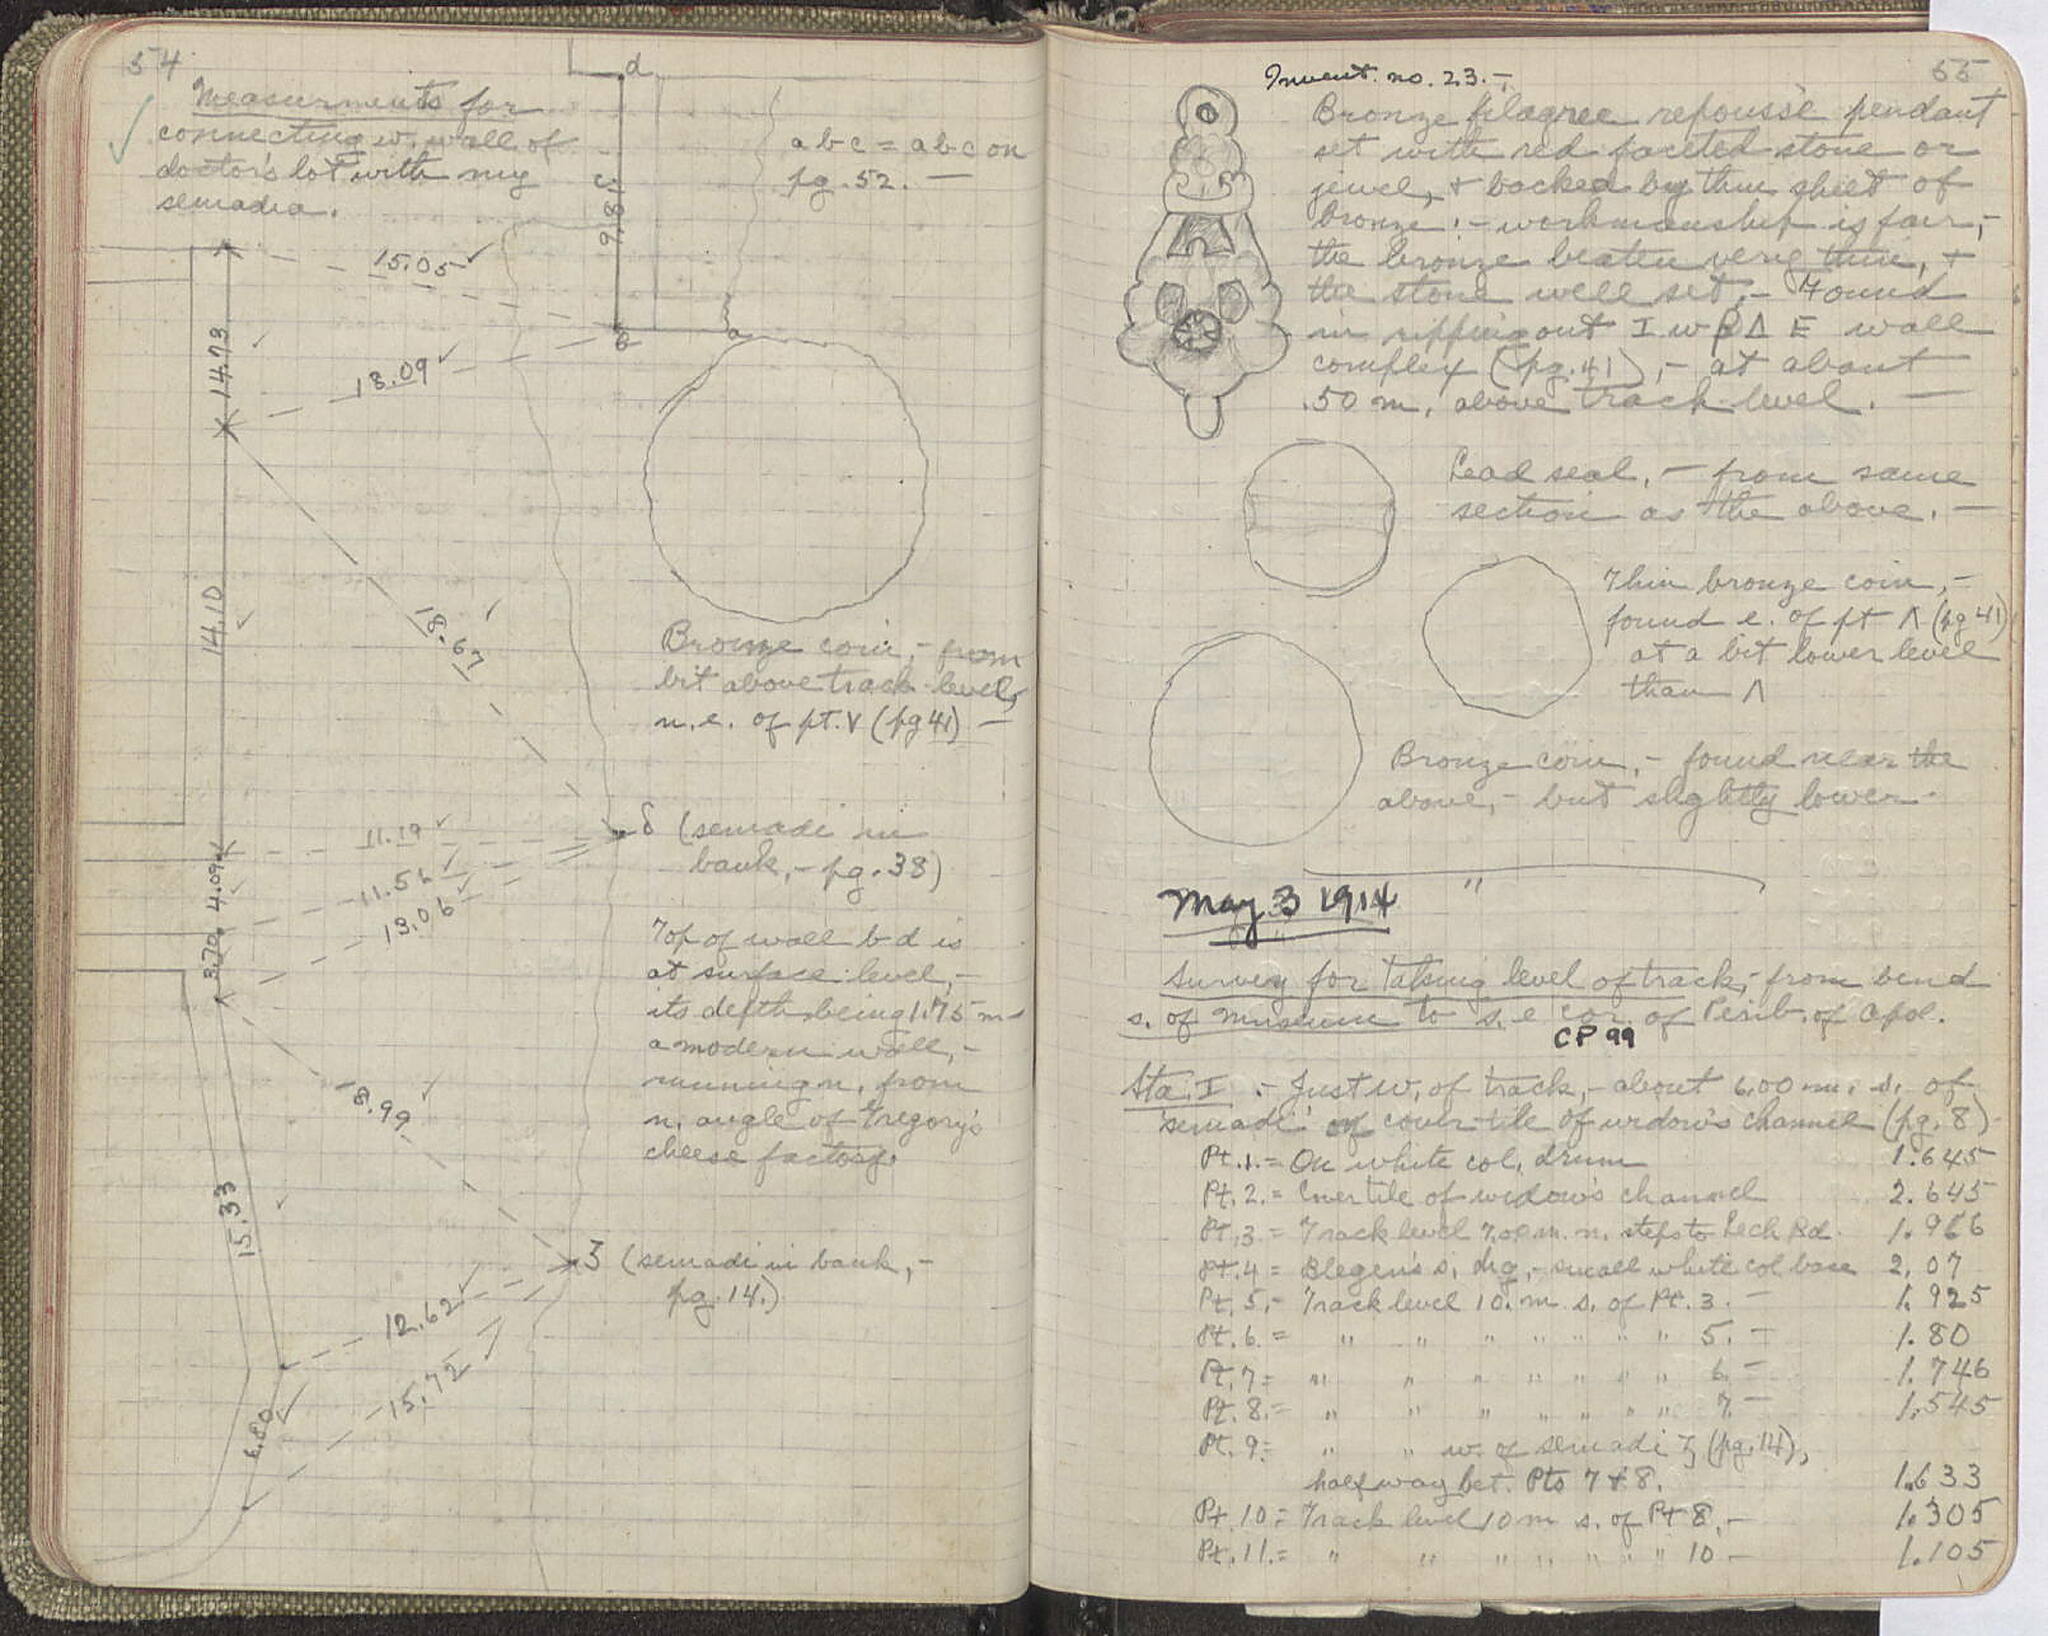 54
Measurments for
connecting w. wall of
doctor's lot with my
semadia.
d
c
9.8
a b c = a b c on
pg. 52. —
15.05
b
a
14.73
18.09
14.10
18.67
Bronze coin, - from
bit above track level,
n.e. of pt. V (pg 41) —
11.19
δ (semadi in
bank, - pg. 38)
4.09
11.56
13.06
3.70
Top of wall b d is
at surface level, -
its depth being 1.75 m -
a modern wall, -
running n. from
n. angle of Gregory's
cheese factory.
8.99
15.33
ζ (semadi in bank, -
pg. 14.)
12.62
15.72
6.80
55
Invent. no. 23. -
Bronze filagree repoussé pendant
set with red faceted stone or
jewel, + backed by thin sheet of
bronze : - workmanship is fair, -
the bronze beaten very thin, +
the stone well set, - Found
in ripping out I w β Δ E wall
complex (pg. 41), - at about
.50 m. above track level. —
Lead seal, - from same
section as the above. —
Thin bronze coin, -
found e. of pt Λ (pg 41)
at a bit lower level
than Λ
Bronze coin, - found near the
above, - but slightly lower.
"
May 3 1914
Survey for taking level of track, - from bend
s. of museum to s. e cor. of Perib. of Apol.
CP 99
Sta. I .- Just w. of track, - about 6.00 m. s. of
'semadi' of cover tile of widow's channel (pg. 8)
Pt. 1. = On white col. drum 1.645
Pt. 2. = Cover tile of widow's channel 2.645
Pt. 3 = Track level 7.00 m. n. steps to Lech Rd. 1.966
Pt. 4 = Blegen's s. dig, - small white col. base 2.07
Pt. 5. - Track level 10. m s. of Pt. 3. — 1.925
Pt. 6. = " " " " " " " 5. — 1.80
Pt. 7 = " " " " " " " 6. — 1.746
Pt. 8. = " " " " " " " 7. — 1.545
Pt. 9 = " " w. of semadi ζ (pg. 14),
half way bet. Pts 7 + 8. 1.633
Pt. 10 = Track level 10 m s. of Pt 8. - 1.305
Pt. 11. = " " " " " " " 10 - 1.105